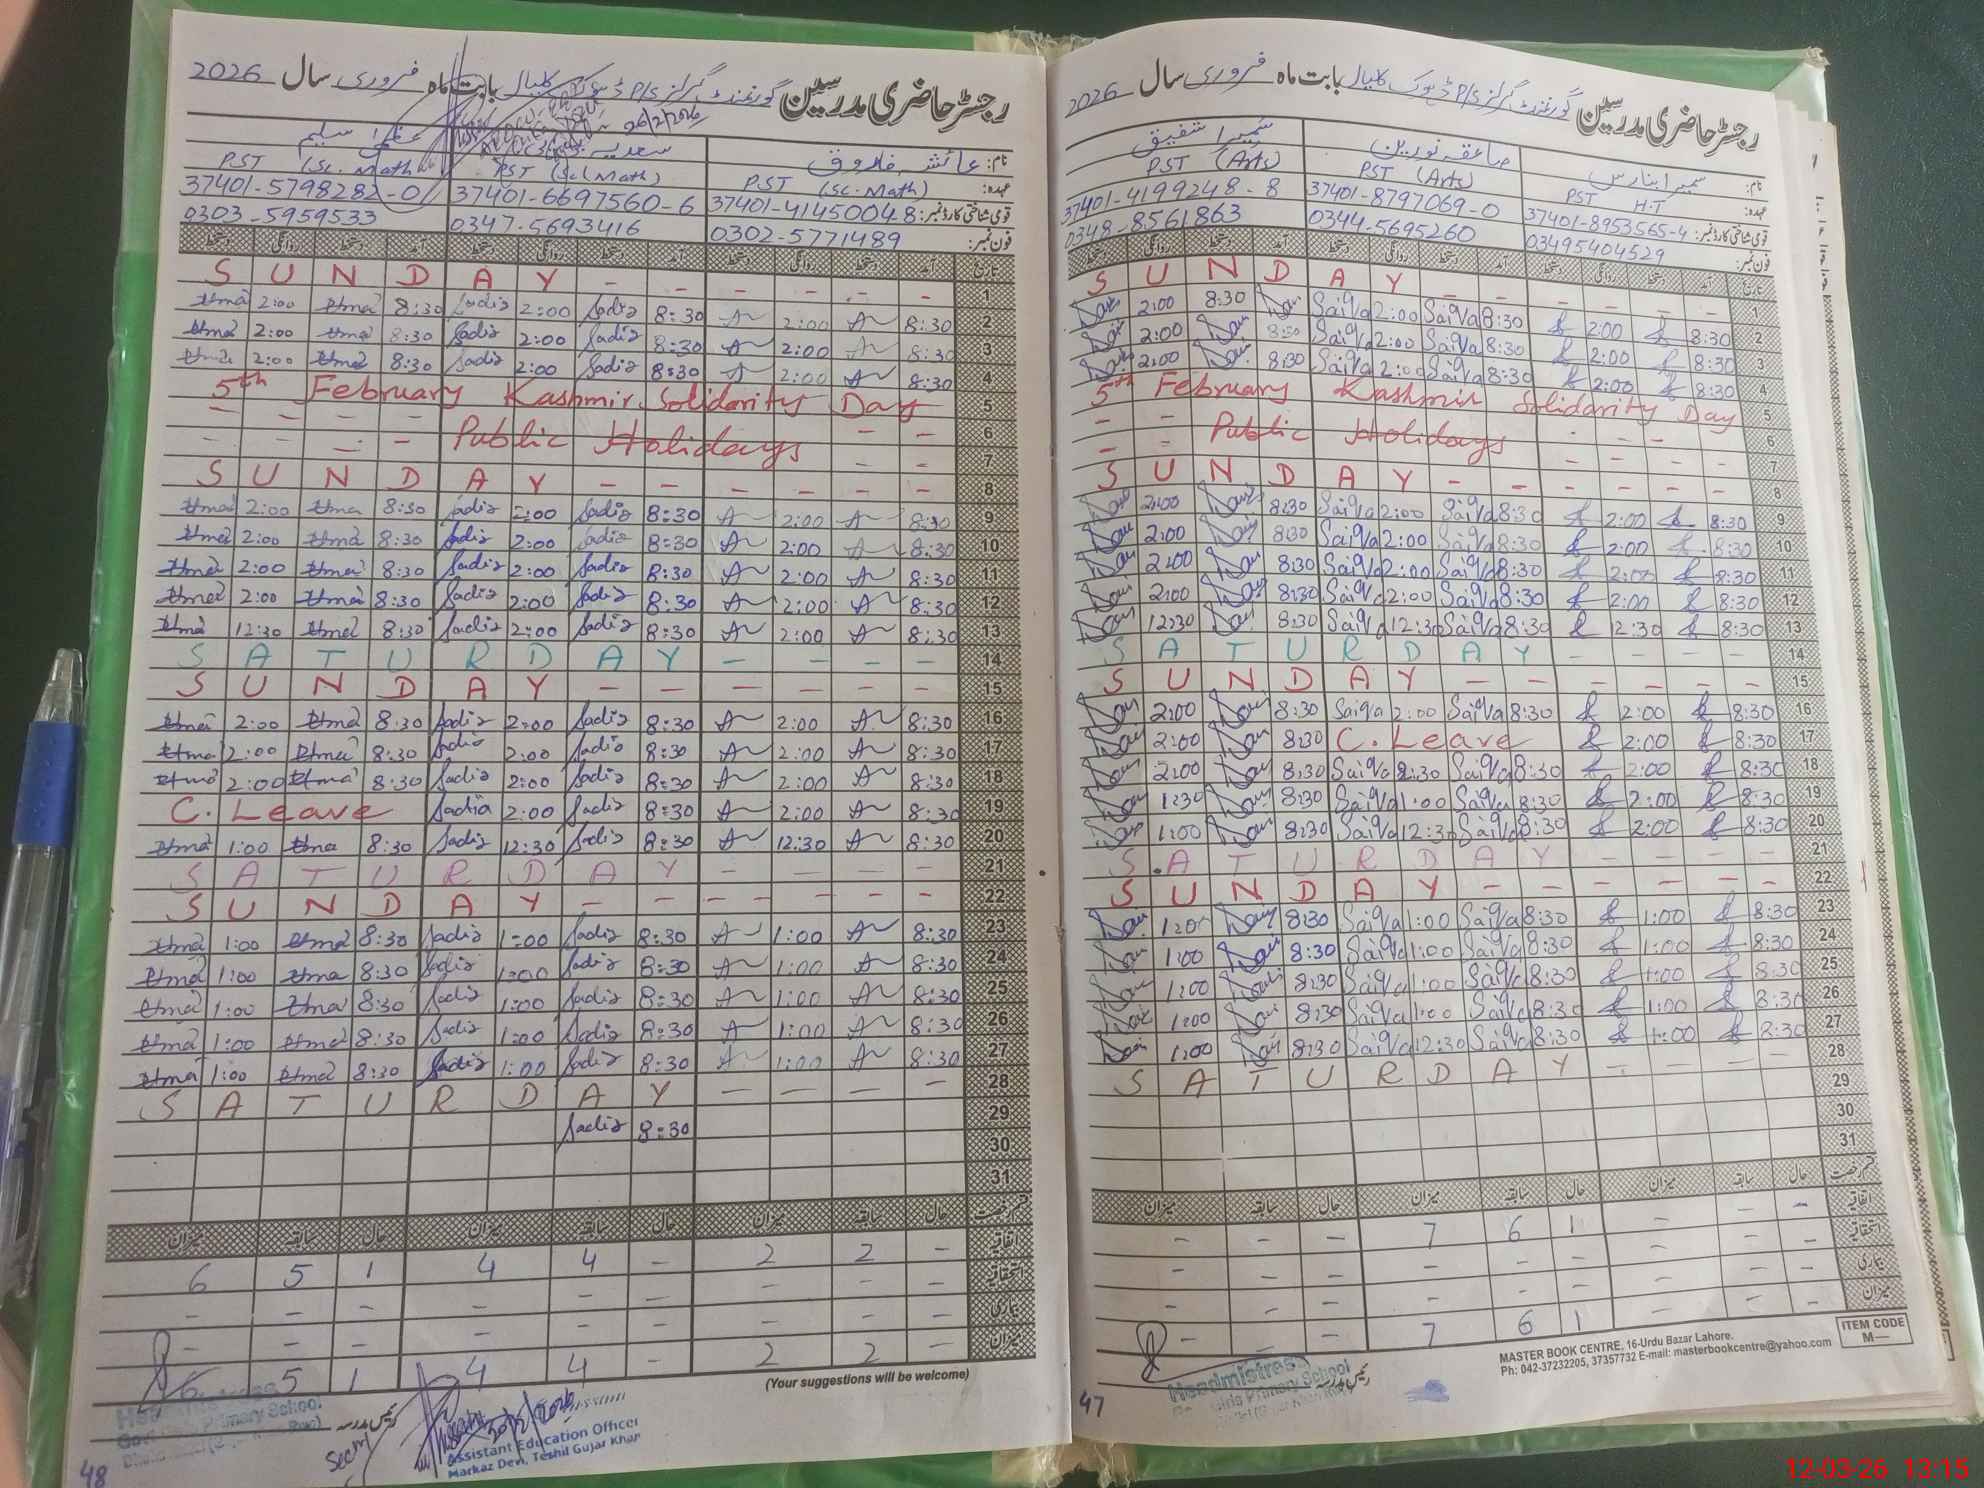 رجسٹر حاضری مدرسین گورنمنٹ گرلز P/S ڈھوک کلیال بابت ماہ فروری سال 2026
26/2/2026
نام: عائشہ فاروق سعدیہ عظمیٰ سلیم
عہدہ: PST (Sc. Math) PST (Sc Math) PST (Sc. Math)
قومی شناختی کارڈ نمبر: 37401-41450048 37401-6697560-6 37401-5798282-0
فون نمبر: 0302-5771489 0347-5693416 0303-5959533
تاریخ آمد دستخط روانگی دستخط آمد دستخط روانگی دستخط آمد دستخط روانگی دستخط
S U N D A Y - - - - - - 1
Uzma 2:00 Uzma 8:30 Sadia 2:00 Sadia 8:30 2:00 8:30 2
Uzma 2:00 Uzma 8:30 Sadia 2:00 Sadia 8:30 2:00 8:30 3
Uzma 2:00 Uzma 8:30 Sadia 2:00 Sadia 8:30 2:00 8:30 4
5th February Kashmir Solidarity Day 5
- - - - Public Holidays - - 6
- - - 7
S U N D A Y - - - - - - 8
Uzma 2:00 Uzma 8:30 Sadia 2:00 Sadia 8:30 2:00 8:30 9
Uzma 2:00 Uzma 8:30 Sadia 2:00 Sadia 8:30 2:00 8:30 10
Uzma 2:00 Uzma 8:30 Sadia 2:00 Sadia 8:30 2:00 8:30 11
Uzma 2:00 Uzma 8:30 Sadia 2:00 Sadia 8:30 2:00 8:30 12
Uzma 12:30 Uzma 8:30 Sadia 2:00 Sadia 8:30 2:00 8:30 13
S A T U R D A Y - - - - 14
S U N D A Y - - - - - - 15
Uzma 2:00 Uzma 8:30 Sadia 2:00 Sadia 8:30 2:00 8:30 16
Uzma 2:00 Uzma 8:30 Sadia 2:00 Sadia 8:30 2:00 8:30 17
Uzma 2:00 Uzma 8:30 Sadia 2:00 Sadia 8:30 2:00 8:30 18
C. Leave Sadia 2:00 Sadia 8:30 2:00 8:30 19
Uzma 1:00 Uzma 8:30 Sadia 12:30 Sadia 8:30 12:30 8:30 20
S A T U R D A Y - - - - 21
S U N D A Y - - - - - - 22
Uzma 1:00 Uzma 8:30 Sadia 1:00 Sadia 8:30 1:00 8:30 23
Uzma 1:00 Uzma 8:30 Sadia 1:00 Sadia 8:30 1:00 8:30 24
Uzma 1:00 Uzma 8:30 Sadia 1:00 Sadia 8:30 1:00 8:30 25
Uzma 1:00 Uzma 8:30 Sadia 1:00 Sadia 8:30 1:00 8:30 26
Uzma 1:00 Uzma 8:30 Sadia 1:00 Sadia 8:30 1:00 8:30 27
S A T U R D A Y - - - - 28
Sadia 8:30 29
30
31
قسم رخصت حال سابقہ میزان حال سابقہ میزان حال سابقہ میزان
اتفاقیہ - 2 2 - 4 4 1 5 6
استحقاقیہ - - - - - - - - -
بیماری - - - - - - - - -
میزان - 2 2 - 4 4 1 5 6
(Your suggestions will be welcome)
رئیس مدرسہ
Primary School
Assistant Education Officer
Markaz Devi, Teshil Gujar Khan
48
رجسٹر حاضری مدرسین گورنمنٹ گرلز P/S ڈھوک کلیال بابت ماہ فروری سال 2026
نام: سمیرا بنارس صاعقہ نورین سمیرا شفیق
عہدہ: PST H.T PST (Arts) PST (Arts)
قومی شناختی کارڈ نمبر: 37401-8953565-4 37401-8797069-0 37401-4199248-8
فون نمبر: 03495404529 0344-5695260 0348-8561863
تاریخ آمد دستخط روانگی دستخط آمد دستخط روانگی دستخط آمد دستخط روانگی دستخط
S U N D A Y - - - - - - 1
2:00 8:30 Saiqa 2:00 Saiqa 8:30 2:00 8:30 2
2:00 8:30 Saiqa 2:00 Saiqa 8:30 2:00 8:30 3
2:00 8:30 Saiqa 2:00 Saiqa 8:30 2:00 8:30 4
5th February Kashmir Solidarity Day 5
- - Public Holidays - - - 6
- - - - 7
S U N D A Y - - - - - - 8
2:00 8:30 Saiqa 2:00 Saiqa 8:30 2:00 8:30 9
2:00 8:30 Saiqa 2:00 Saiqa 8:30 2:00 8:30 10
2:00 8:30 Saiqa 2:00 Saiqa 8:30 2:00 8:30 11
2:00 8:30 Saiqa 2:00 Saiqa 8:30 2:00 8:30 12
12:30 8:30 Saiqa 12:30 Saiqa 8:30 12:30 8:30 13
S A T U R D A Y - - - - 14
S U N D A Y - - - - - - 15
2:00 8:30 Saiqa 2:00 Saiqa 8:30 2:00 8:30 16
2:00 8:30 C. Leave 2:00 8:30 17
2:00 8:30 Saiqa Saiqa 8:30 2:00 8:30 18
1:30 8:30 Saiqa 1:00 Saiqa 8:30 2:00 8:30 19
1:00 8:30 Saiqa 12:30 Saiqa 8:30 2:00 8:30 20
S A T U R D A Y - - - - 21
S U N D A Y - - - - - - 22
1:00 8:30 Saiqa 1:00 Saiqa 8:30 1:00 8:30 23
1:00 8:30 Saiqa 1:00 Saiqa 8:30 1:00 8:30 24
1:00 8:30 Saiqa 1:00 Saiqa 8:30 1:00 8:30 25
1:00 8:30 Saiqa 1:00 Saiqa 8:30 1:00 8:30 26
1:00 8:30 Saiqa 12:30 Saiqa 8:30 1:00 8:30 27
S A T U R D A Y - - - - 28
29
30
31
قسم رخصت حال سابقہ میزان حال سابقہ میزان حال سابقہ میزان
اتفاقیہ - - - 1 6 7 - - -
استحقاقیہ - - - - - - - - -
بیماری - - - - - - - - -
میزان - - - 1 6 7 - - -
ITEM CODE
M—
MASTER BOOK CENTRE, 16-Urdu Bazar Lahore.
Ph: 042-37232205, 37357732 E-mail: masterbookcentre@yahoo.com
رئیس مدرسہ
Headmistress
Girls Primary School
47
12-03-26 13:15